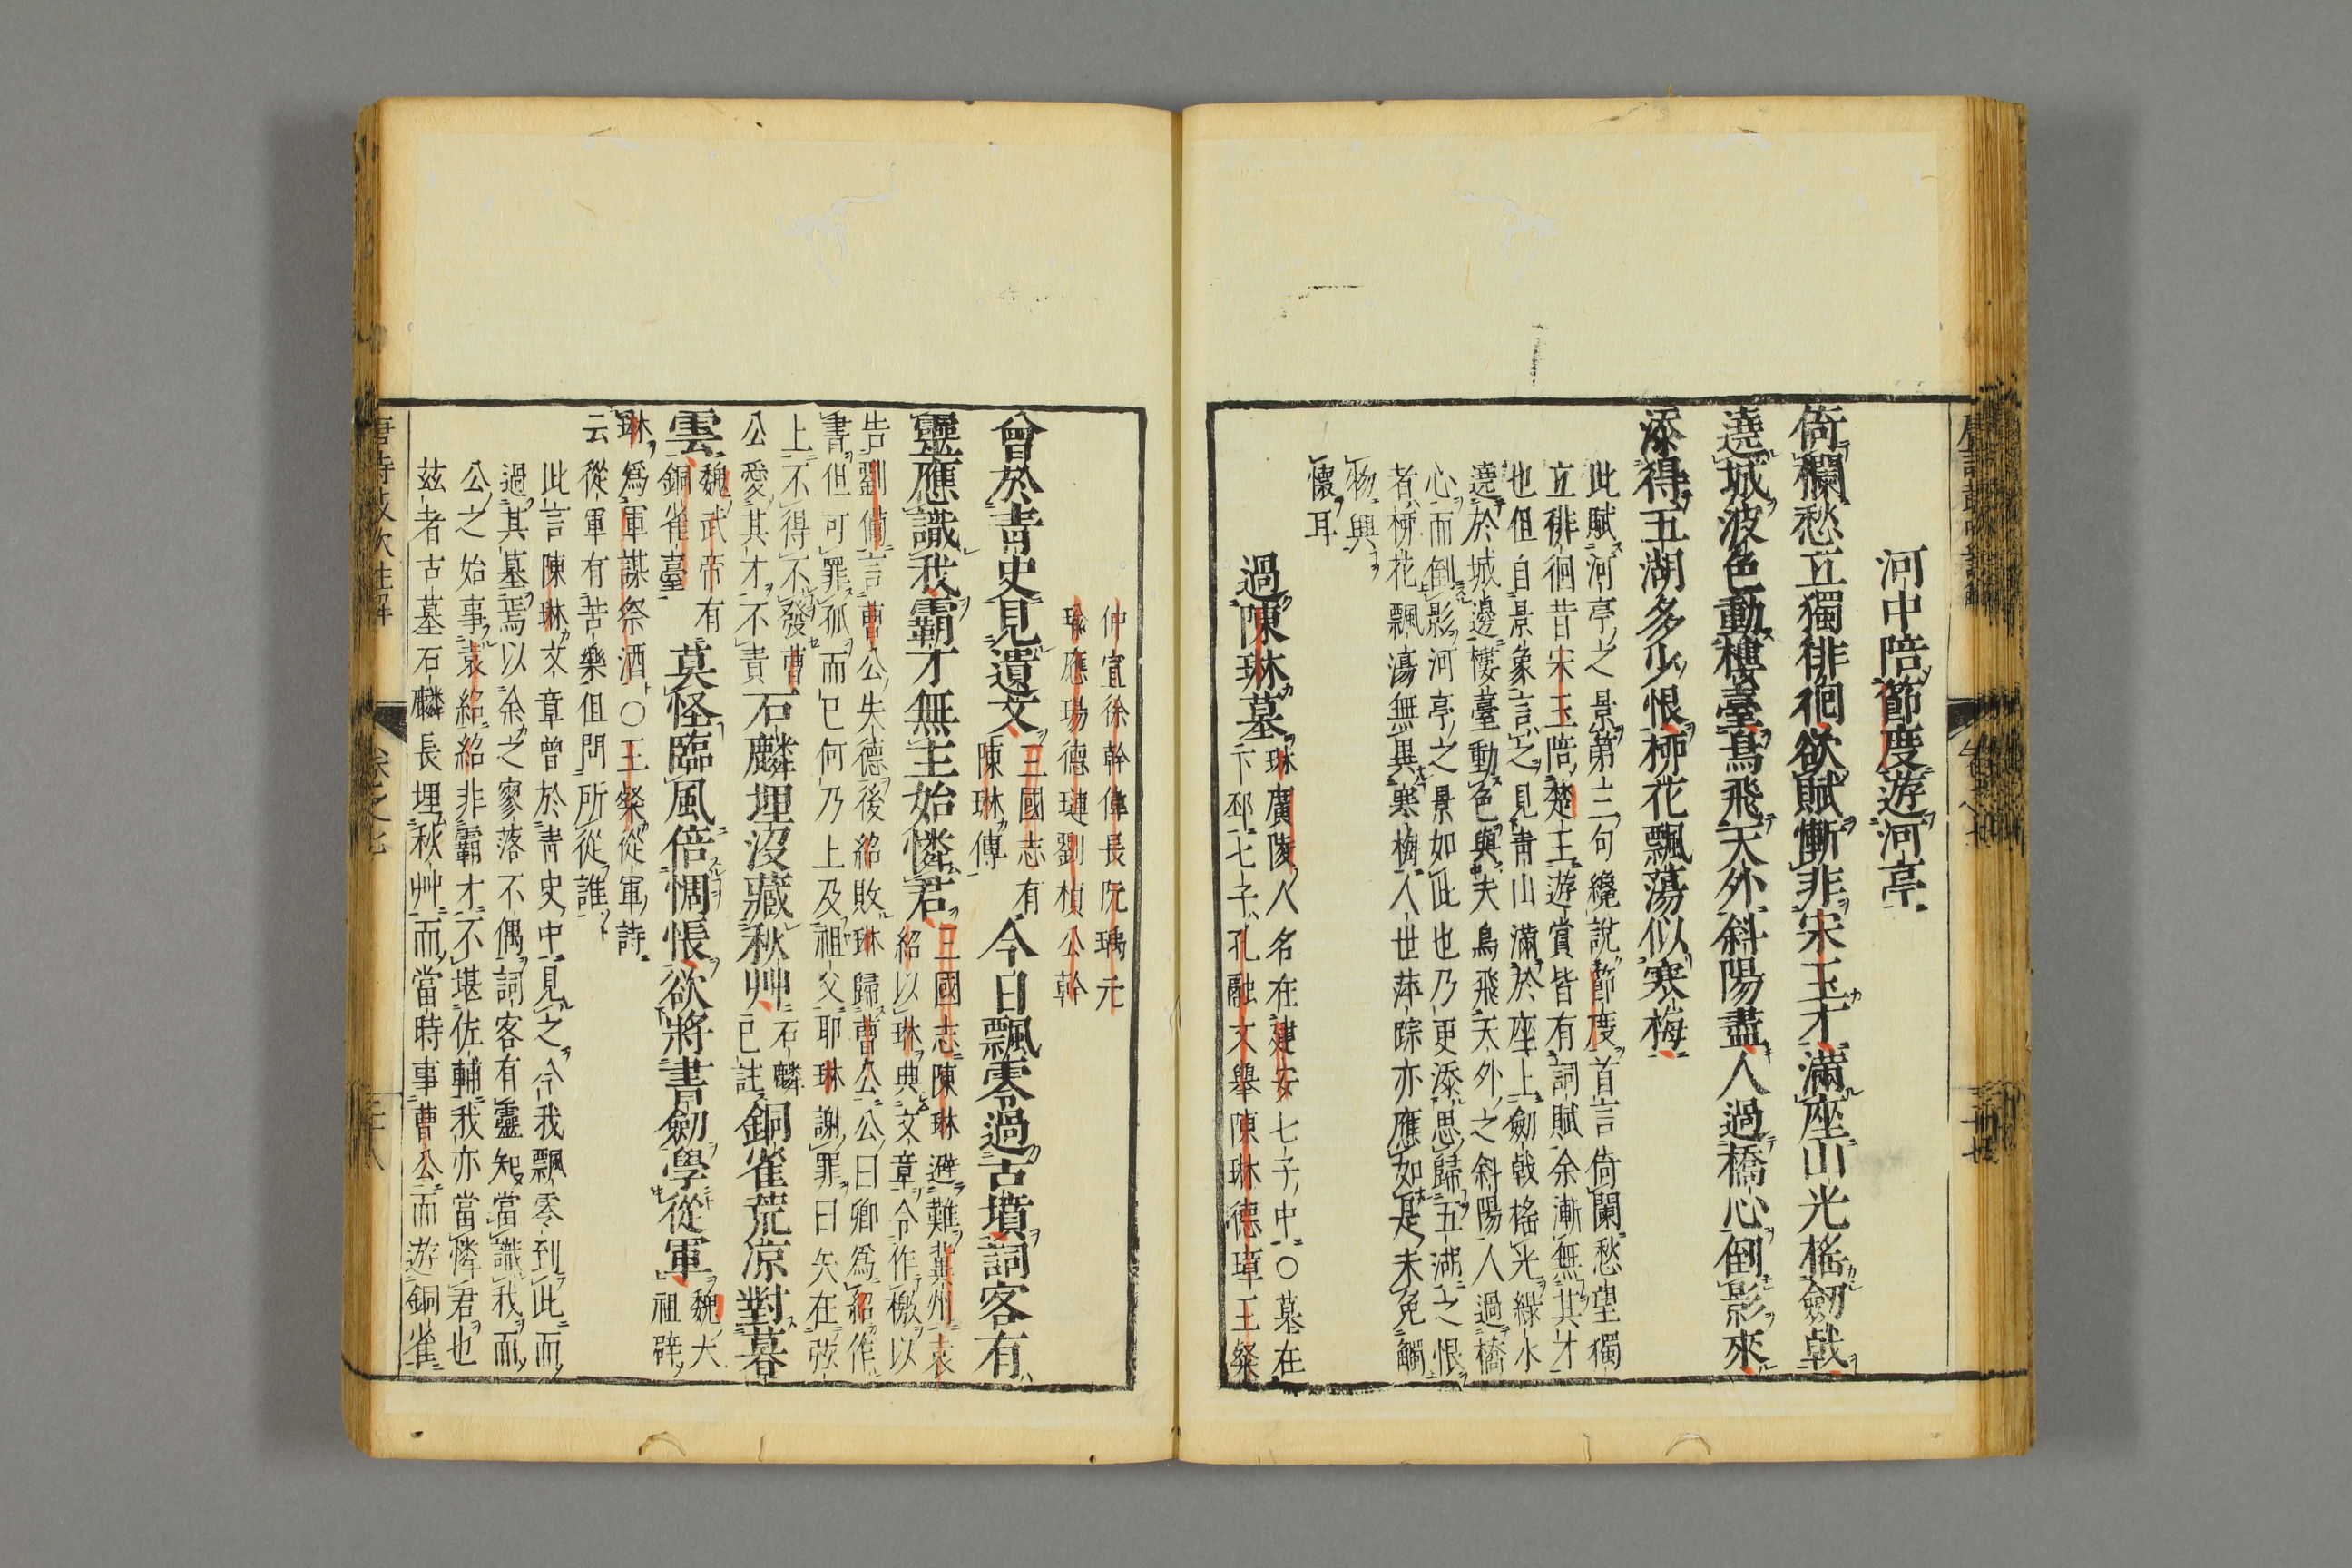 河中陪節度遊河亭
倚欄愁立獨徘徊欲賦慚非宋玉才滿座山光搖劒戟
遶城波色動樓臺鳥飛天外斜陽盡人過橋心倒影來
添得五湖多少恨柳花飄蕩似寒梅
此賦河亭之景第三句纔說節度首言倚闌愁望獨
立徘徊昔宋玉陪楚王遊賞皆有詞賦余漸無其才
也但自景象言之見青山滿於座上劒戟搖光綠水
遶於城邊樓臺動色與夫鳥飛天外之斜陽人過橋
心而倒影河亭之景如此也乃更添思歸五湖之恨
者柳花飄蕩無異寒梅人世萍踪亦應如是未免觸
物興
懷耳
過陳琳墓
琳廣陵人名在建安七子中○墓在
下邳七子孔融文舉陳琳德璋王粲
仲宣徐幹偉長阮瑀元
瑜應瑒德璉劉楨公幹
曾於青史見遺文
三國志有
陳琳傳
今日飄零過古墳詞客有
靈應識我霸才無主始憐君
三國志陳琳避難冀州袁
紹以琳典文章令作檄以
告劉備言曹公失德後紹敗琳歸曹公公曰卿爲紹作
書但可罪孤而已何乃上及祖父耶琳謝罪曰矢在弦
上不得不發曹
公愛其才不責
石麟埋没藏秋艸
石麟
已註
銅雀荒凉對暮
雲
魏武帝有
銅雀臺
莫怪臨風倍惆悵欲將書劒學從軍
魏大
祖辟
琳爲軍謀祭酒○王粲從軍詩
云從軍有苦樂但問所從誰
此言陳琳文章曾於青史中見之今我飄零到此而
過其墓焉以余之寥落不偶詞客有靈知當識我而
公之始事袁紹紹非霸才不堪佐輔我亦當憐君也
兹者古墓石麟長埋秋艸而當時事曹公而遊銅雀
卷之七